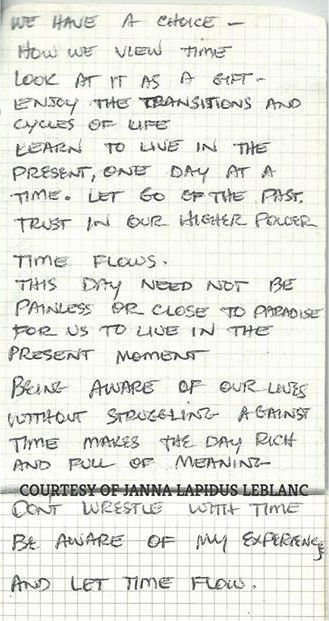 WE HAVE A CHOICE –
HOW WE VIEW TIME
LOOK AT IT AS A GIFT –
ENJOY THE TRANSITIONS AND
CYCLES OF LIFE
LEARN TO LIVE IN THE
PRESENT, ONE DAY AT A
TIME. LET GO OF THE PAST.
TRUST IN OUR HIGHER POWER
TIME FLOWS.
THIS DAY NEED NOT BE
PAINLESS OR CLOSE TO PARADISE
FOR US TO LIVE IN THE
PRESENT MOMENT
BEING AWARE OF OUR LIVES
WITHOUT STRUGGLING AGAINST
TIME MAKES THE DAY RICH
AND FULL OF MEANING
COURTESY OF JANNA LAPIDUS LEBLANC
DONT WRESTLE WITH TIME
BE AWARE OF MY EXPERIENCES
AND LET TIME FLOW.